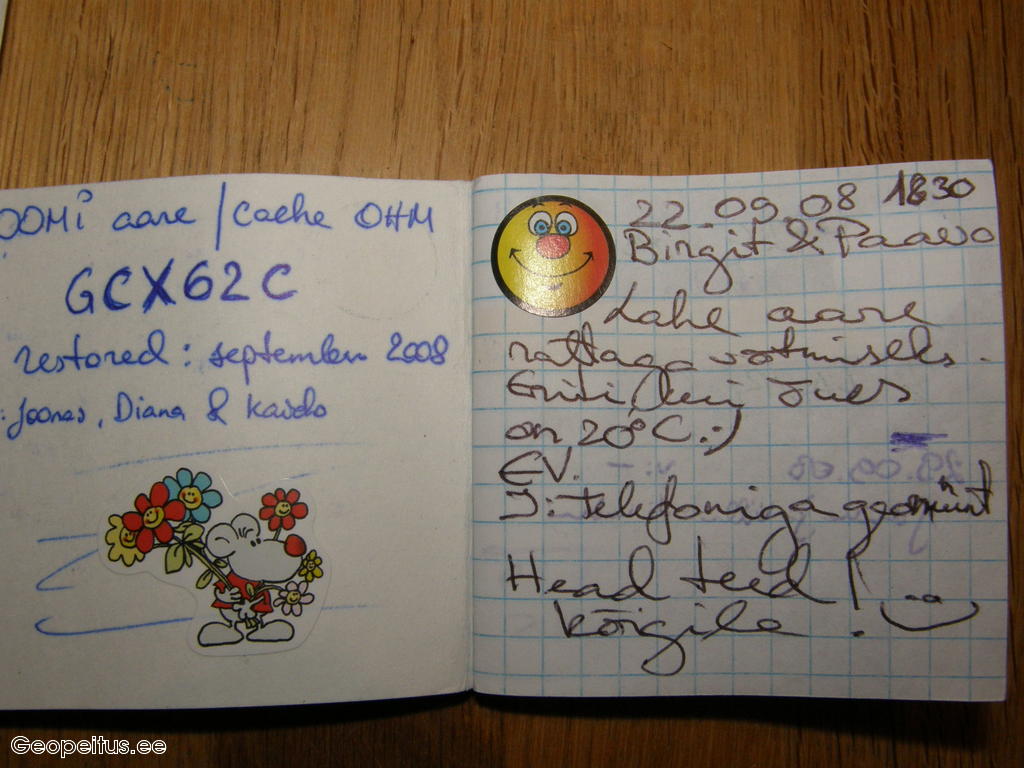 OOMi aare / Cache OHM
GCX62C
restored: september 2008
: Joonas, Diana & Kaido
22.09.08 1830
Birgit & Paavo
Lahe aare
rattaga võtmiseks.
on 20°C :)
EV.
J: Telefoniga geomünt
Head teed
kõigile !
Geopeitus.ee